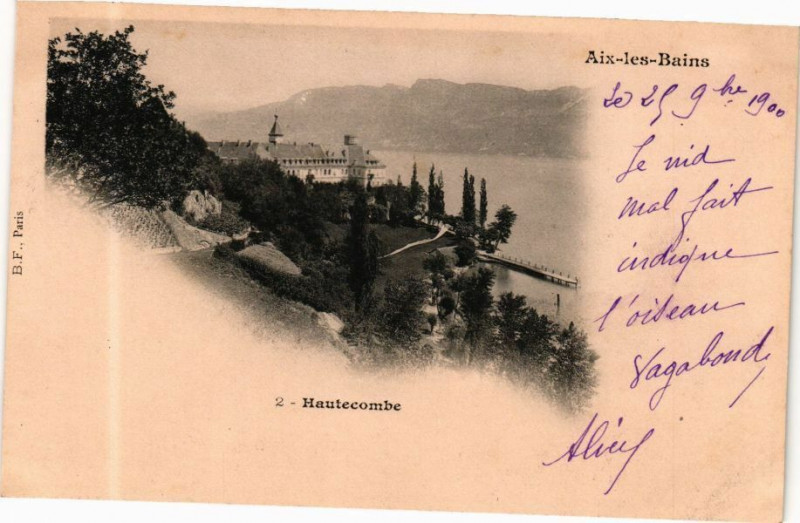 Aix-les-Bains
Le 25 9bre 1900
Le nid
mal fait
indique
l'oiseau
Vagabond,
Alice
2 - Hautecombe
B.F., Paris